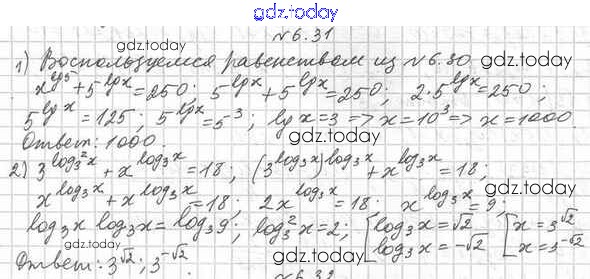 gdz.today
№6.31
gdz.today
1) Воспользуемся равенством из №6.30
gdz.today
x^{lg5} + 5^{lgx} = 250; 5^{lgx} + 5^{lgx} = 250; 2·5^{lgx} = 250;
5^{lgx} = 125; 5^{lgx} = 5^3; lgx = 3 => x = 10^3 => x = 1000.
gdz.today
Ответ: 1000.
gdz.today
2) 3^{log_3^2 x} + x^{log_3 x} = 18; (3^{log_3 x})^{log_3 x} + x^{log_3 x} = 18;
x^{log_3 x} + x^{log_3 x} = 18; 2x^{log_3 x} = 18; x^{log_3 x} = 9;
gdz.today
log_3 x log_3 x = log_3 9; log_3^2 x = 2; [log_3 x = √2 [x = 3^{√2}
log_3 x = -√2 x = 3^{-√2}
gdz.today
gdz.today
Ответ: 3^{√2}; 3^{-√2}
№6.32